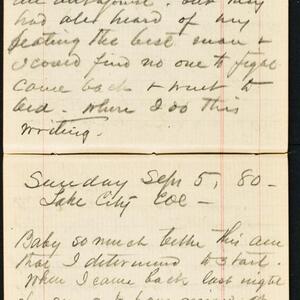 had all heard of my
beating the best man &
I could find no one to fight
came back & went to
bed - where I do this
writing.
Sunday Sep 5, 80 -
Lake City Col -
Baby so much better this am
that I determined to start.
When I came back last night